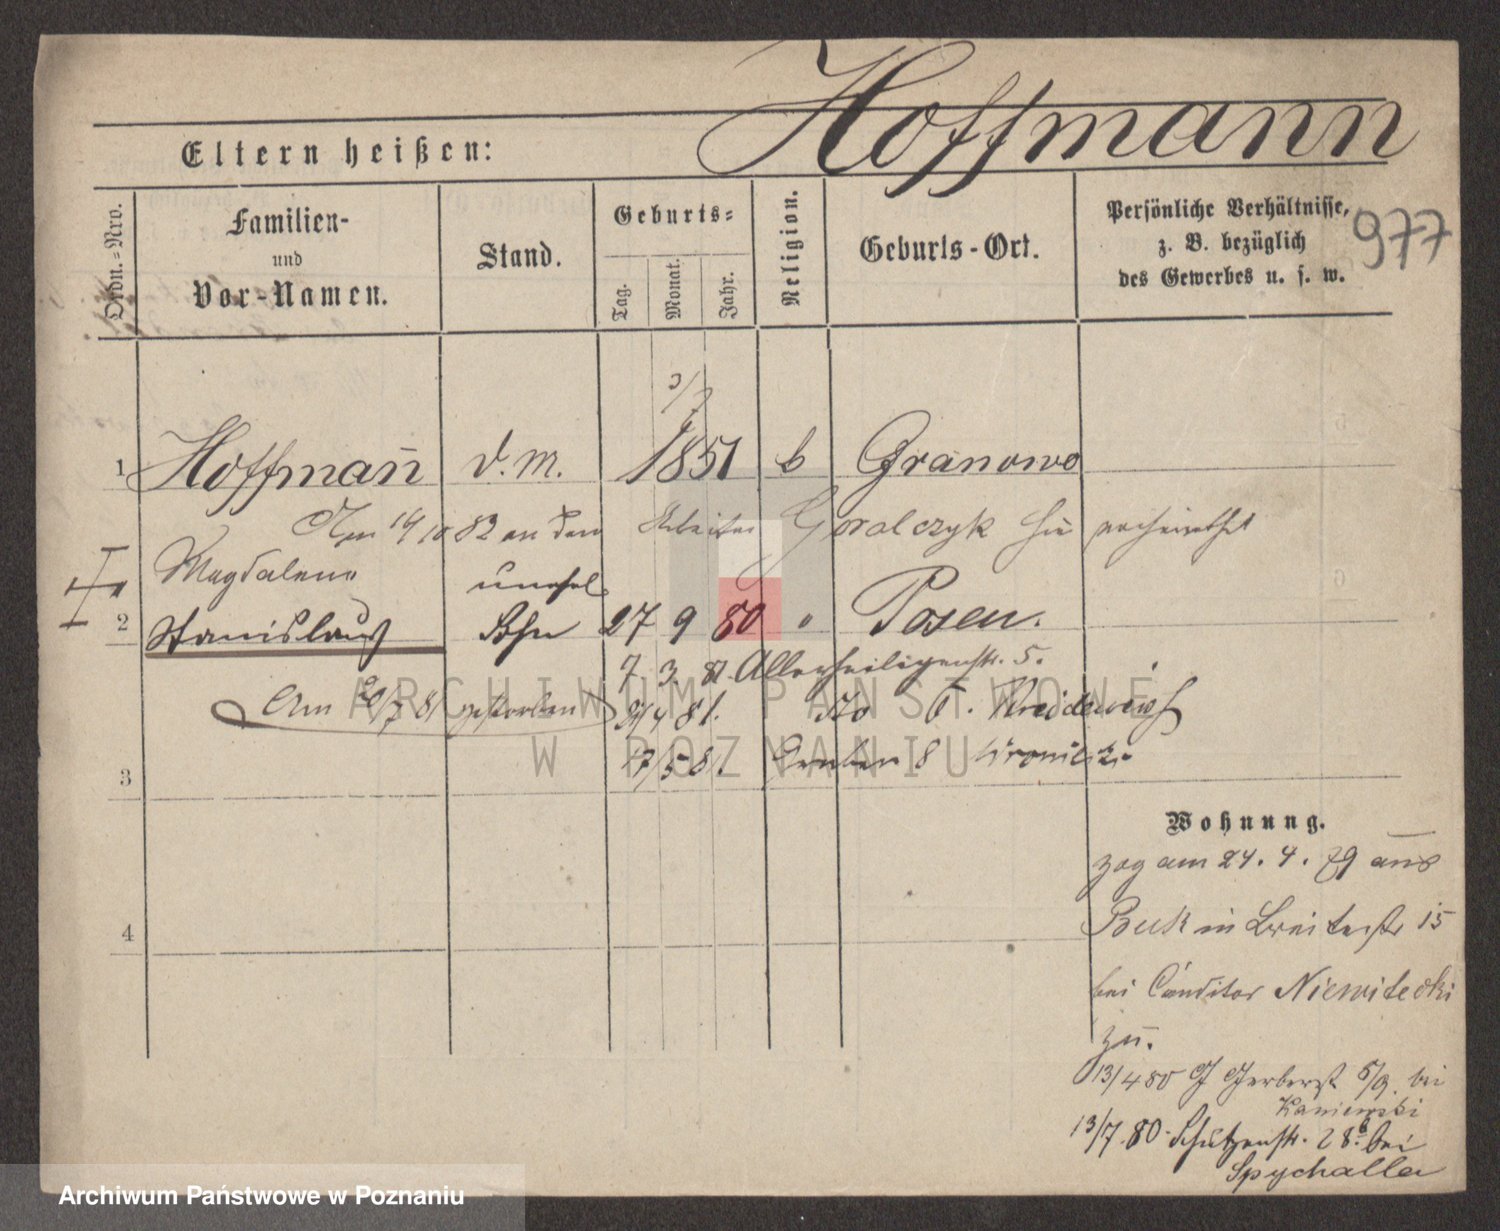 Hoffmann
Eltern heißen:
977
Ordn.-Nro.
Familien-
und
Vor-Namen.
Stand.
Geburts-
Tag.
Monat.
Jahr.
Religion.
Geburts-Ort.
Persönliche Verhältnisse,
z. B. bezüglich
des Gewerbes u. s. w.
1 Hoffman̄ d. M. 1851 b Granowo
Am 14/10 83 an den Arbeiter Goralczyk hier verheirathet
Magdalena unehel
2 Stanislaus Sohn 27 9 80 " Posen.
7. 3. 81. Allerheiligenstr. 5.
Am 20/7 81 gestorben
4 81.
17/5 81. Graben 8
3
4
Wohnung.
zog am 24. 4. 79 aus
Buk in Breitestr 15
bei Conditor Niewitecki
zu.
13/4 80 Gerberst 8/9. bei
Kaniewski
13/7. 80. Schützenstr. 28b bei
Spychalla
ARCHIWUM PAŃSTWOWE
W POZNANIU
Archiwum Państwowe w Poznaniu